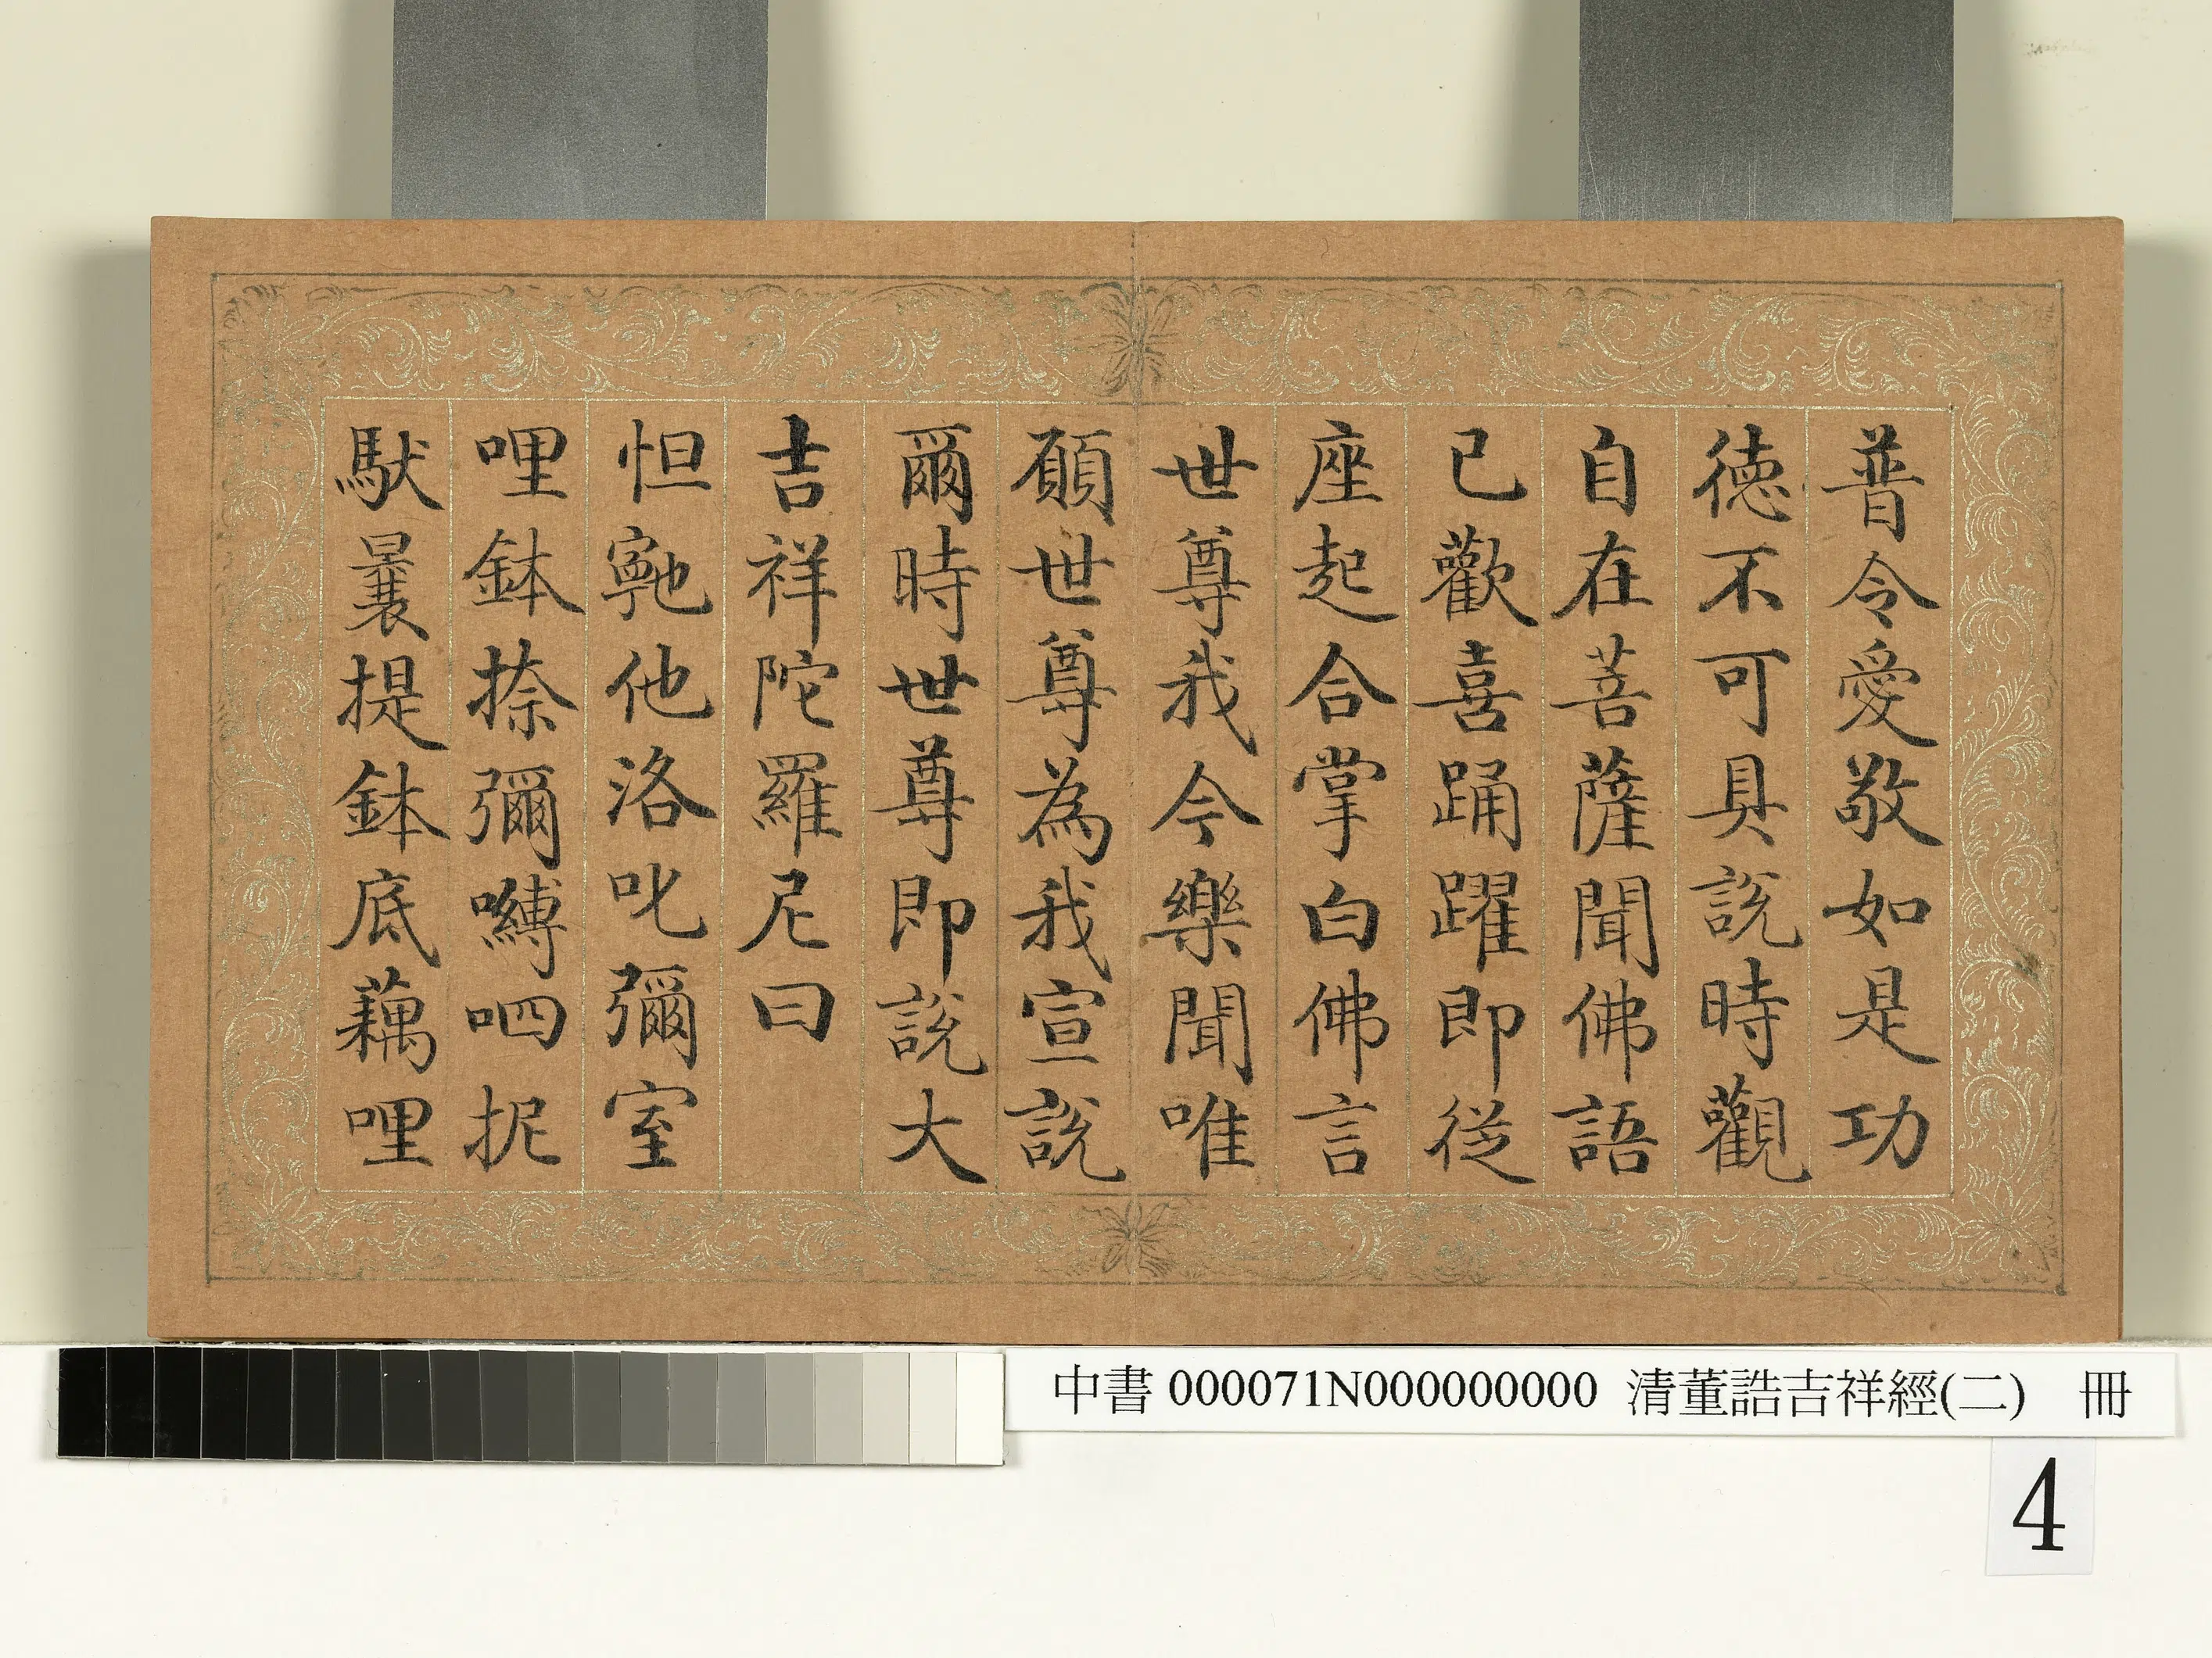 普令愛敬如是功
德不可具說時觀
自在菩薩聞佛語
已歡喜踊躍即從
座起合掌白佛言
世尊我今樂聞唯
願世尊為我宣說
爾時世尊即說大
吉祥陀羅尼曰
怛寧也他洛叱彌室
哩鉢捺彌嚩呬抳
馱曩提鉢底藕哩
中書000071N000000000 清董誥吉祥經(二) 冊
4